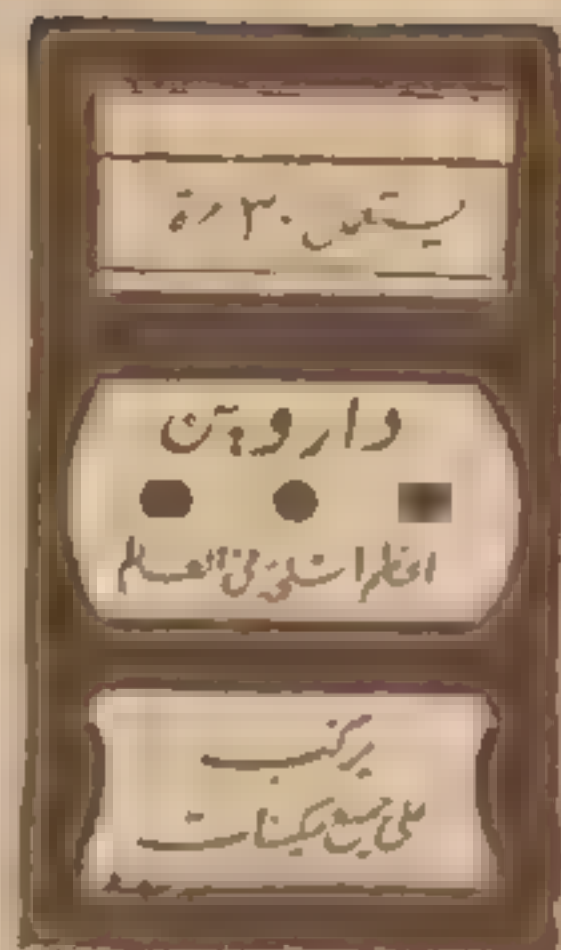 يستعمل ٣٠ مرة
داروين
اخطر اشتلي في العالم
يركب
على جميع مكينات